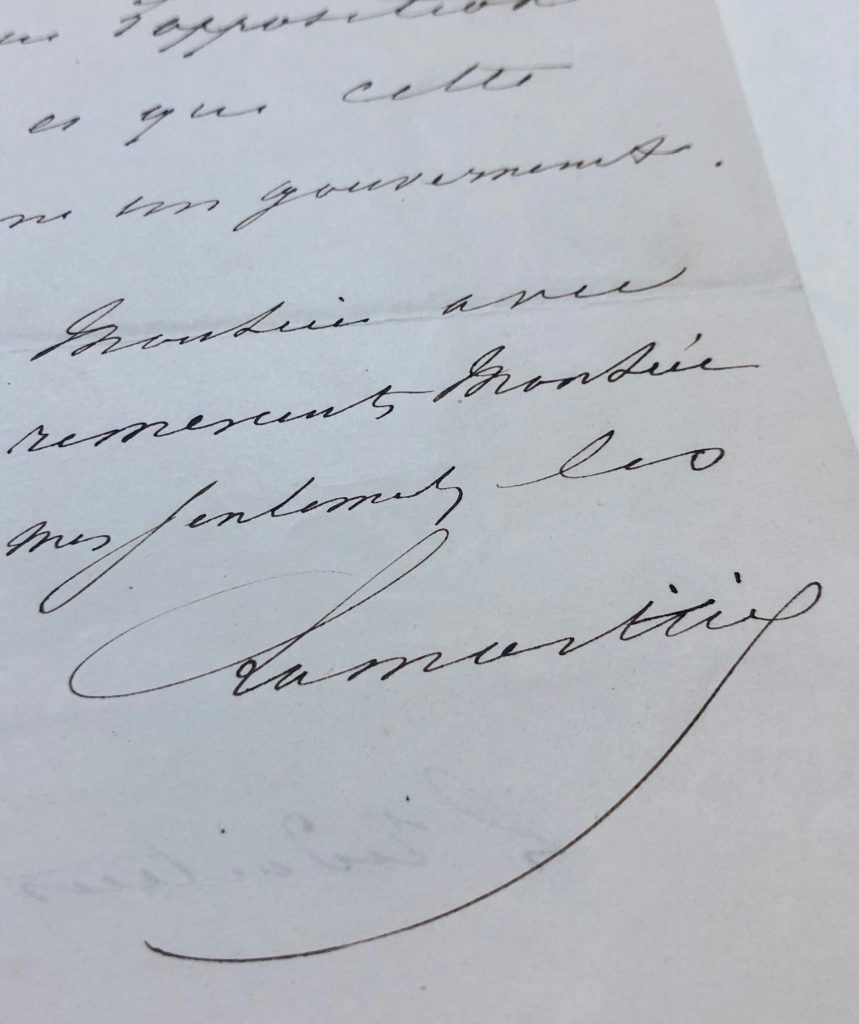 l'opposition
es que cette
un gouvernement.
Monsieur avec
remerciements Monsieur
mes sentiments les
Lamartine